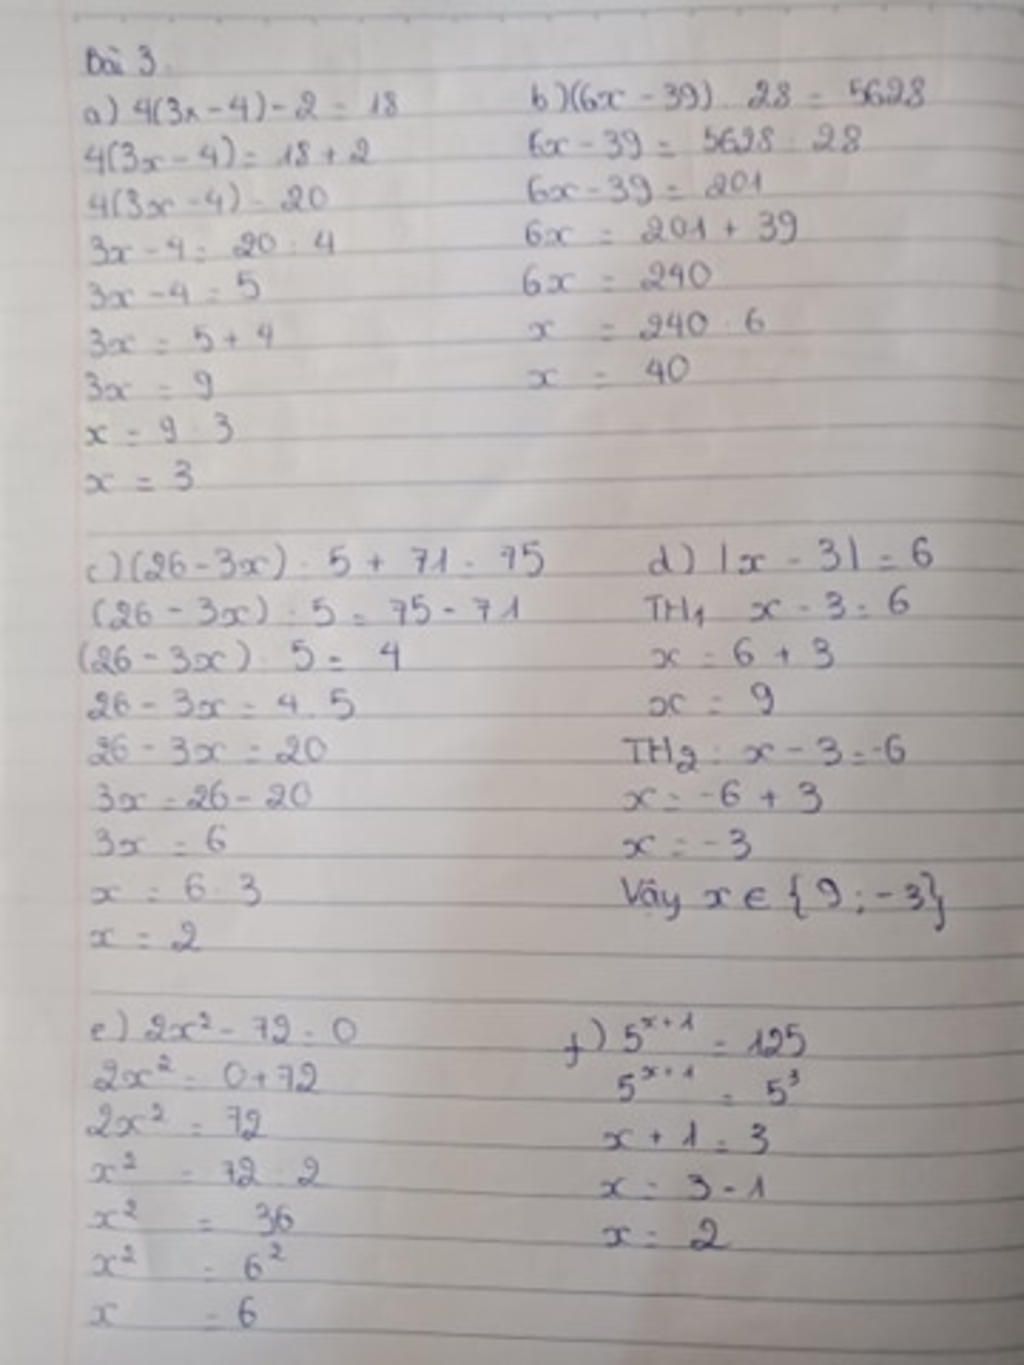 Bài 3.
a) 4(3x - 4) - 2 = 18
4(3x - 4) = 18 + 2
4(3x - 4) = 20
3x - 4 = 20 : 4
3x - 4 = 5
3x = 5 + 4
3x = 9
x = 9 : 3
x = 3
b) (6x - 39) . 28 = 5628
6x - 39 = 5628 : 28
6x - 39 = 201
6x = 201 + 39
6x = 240
x = 240 : 6
x = 40
c) (26 - 3x) : 5 + 71 = 75
(26 - 3x) : 5 = 75 - 71
(26 - 3x) : 5 = 4
26 - 3x = 4 . 5
26 - 3x = 20
3x = 26 - 20
3x = 6
x = 6 : 3
x = 2
d) |x - 3| = 6
TH1 x - 3 = 6
x = 6 + 3
x = 9
TH2 : x - 3 = -6
x = -6 + 3
x = -3
Vậy x ∈ {9 ; -3}
e) 2x² - 72 = 0
2x² = 0 + 72
2x² = 72
x² = 72 : 2
x² = 36
x² = 6²
x = 6
f) 5^(x+1) = 125
5^(x+1) = 5³
x + 1 = 3
x = 3 - 1
x = 2